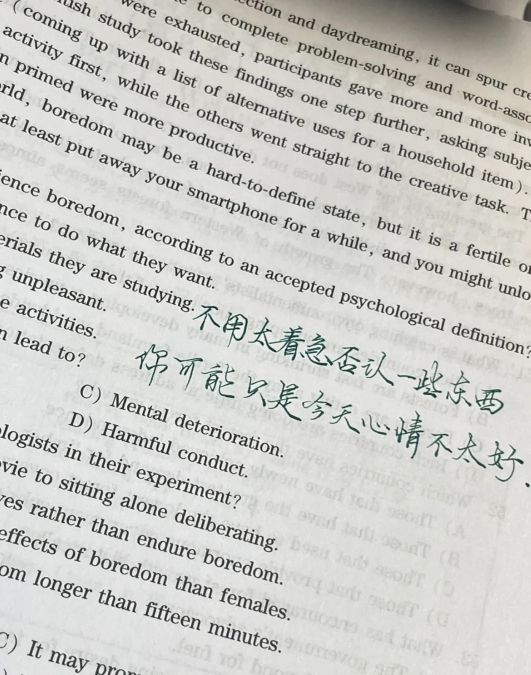 ction and daydreaming, it can spur cre
to complete problem-solving and word-asso
were exhausted, participants gave more and more inv
(coming up with a list of alternative uses for a household item).
study took these findings one step further, asking subje
activity first, while the others went straight to the creative task. T
n primed were more productive.
rld, boredom may be a hard-to-define state, but it is a fertile o
at least put away your smartphone for a while, and you might unlo
ience boredom, according to an accepted psychological definition?
nce to do what they want.
erials they are studying.
g unpleasant.
e activities.
n lead to?
不用太着急否认一些东西
你可能只是今天心情不太好.
C) Mental deterioration.
D) Harmful conduct.
ologists in their experiment?
vie to sitting alone deliberating.
ves rather than endure boredom.
effects of boredom than females.
om longer than fifteen minutes.
C) It may pro